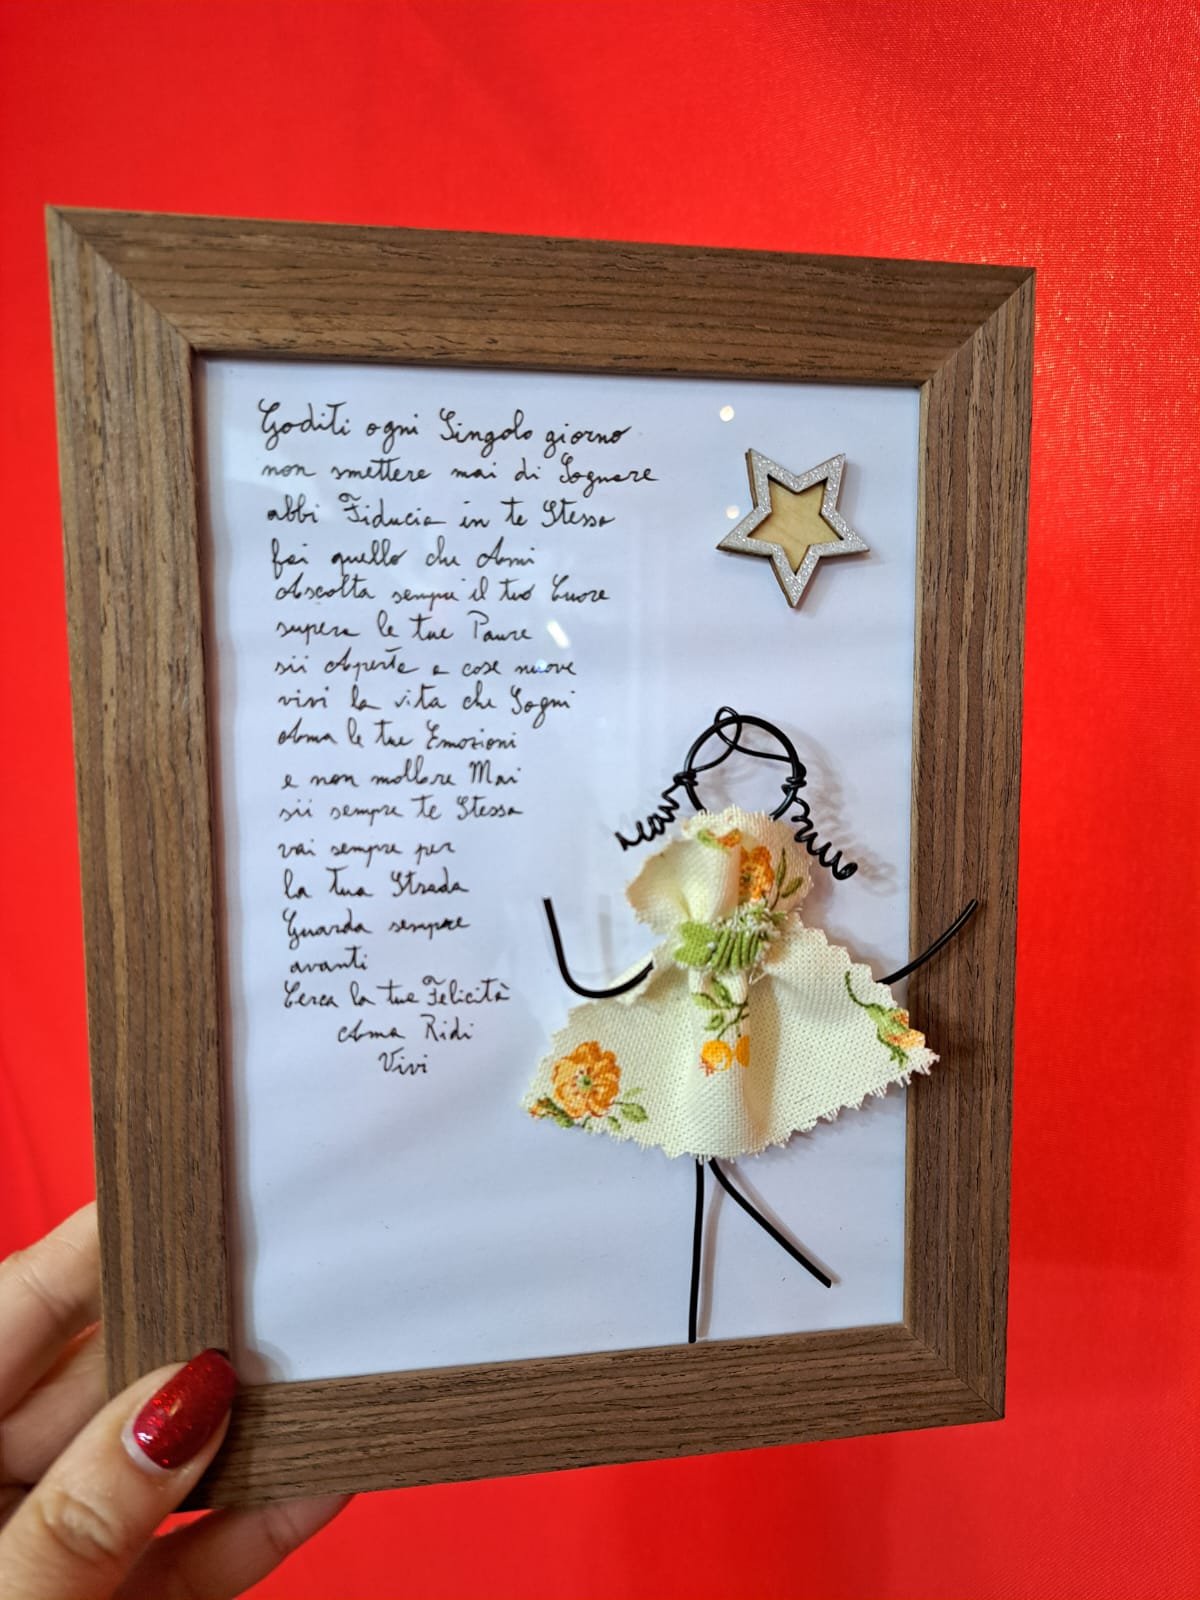 Goditi ogni Singolo giorno
non smettere mai di Sognare
abbi Fiducia in te Stessa
fai quello che Ami
Ascolta sempre il tuo Cuore
supera le tue Paure
sii Aperta a cose nuove
vivi la vita che Sogni
Ama le tue Emozioni
e non mollare Mai
sii sempre te Stessa
vai sempre per
la tua Strada
Guarda sempre
avanti
Cerca la tua Felicità
Ama Ridi
Vivi